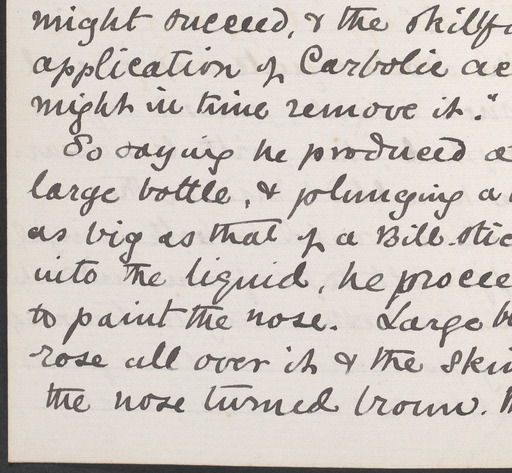 might succeed, & the skillfu
application of Carbolic ac
might in time remove it."
So saying he produced a
large bottle, & plunging a
as big as that of a Bill-stic
into the liquid, he procee
to paint the nose. Large b
rose all over it & the skin
the nose turned brown.